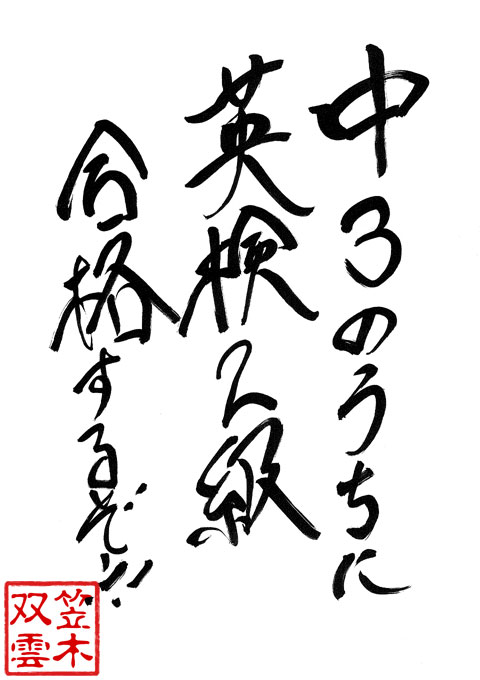 中3のうちに
英検2級
合格するぞ!!
笠木
双雲